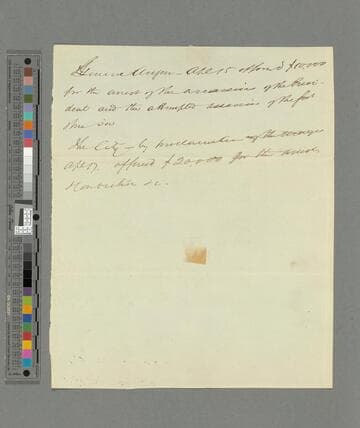 General Augur - Apl 15 offered $10,000
for the arrest of the assassin of the Presi-
dent and the attempted assassin of the
The City - by proclamation of the mayor
Apl 17. offered $20,000 for the arrest,
&c.